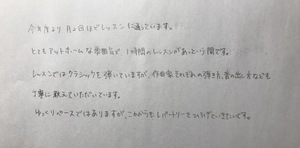 今年月より月2日ほどレッスンに通っています。
とてもアットホームな雰囲気で、1時間のレッスンがあっという間です。
レッスンではクラシックを弾いていますが、作曲家それぞれの弾き方、音の出し方なども
丁寧に教えていただいています。
ゆっくりペースではありますが、これからもレパートリーをひろげていきたいです。